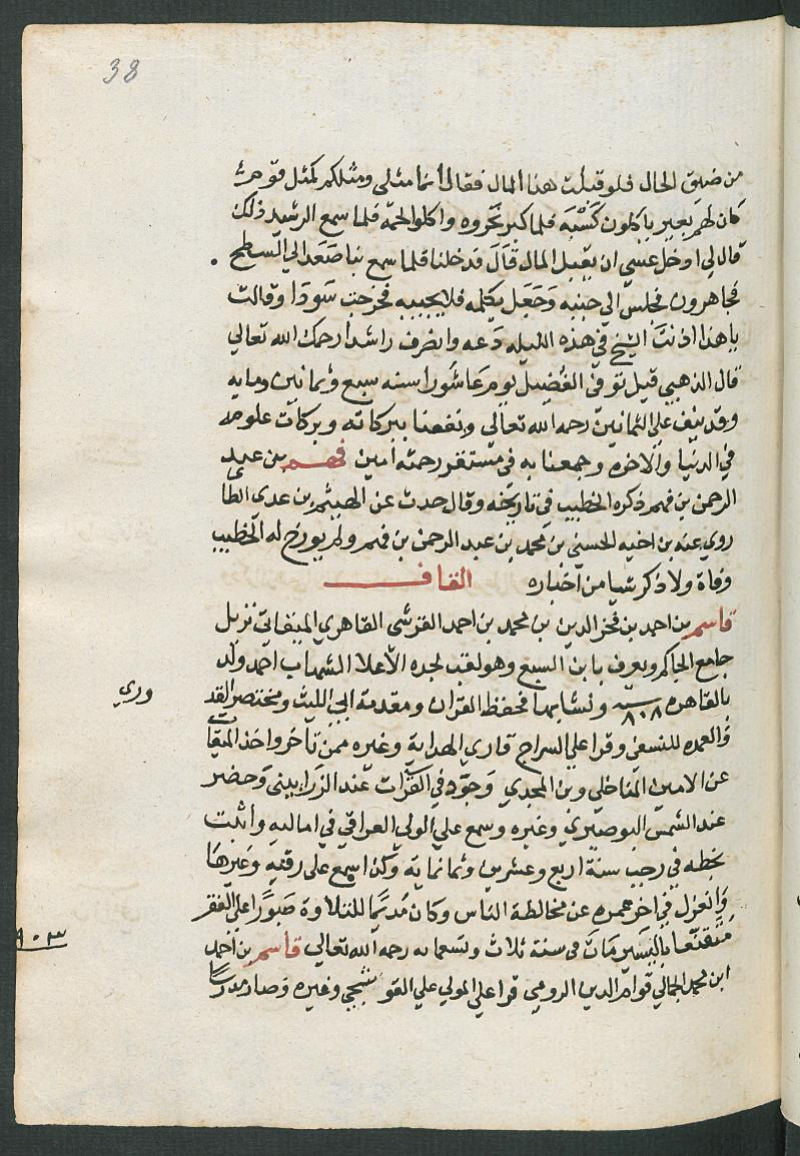 38
من ضيق الحال فلو قبلت هذا المال فقال انما مثلى ومثلكم كمثل قوم
كان لهم بعير ياكلون كسبه فلما كبر نحروه واكلوا لحمه فلما سمع الرشيد ذلك
قال لي ادخل عسي ان يقبل المال قال فدخلنا فلما سمع بنا صعد الي السطح
فجا هرون فجلس الي جنبه وجعل يكلمه فلا يجيبه فخرجت سودا وقالت
يا هذا اذيت الشيخ في هذه الليله دعه وانصرف راشدا رحمك الله تعالي
قال الذهبي قيل توفى الفضيل يوم عاشورا سنه سبع وثمانين ومايه
وقد نيف علي الثمانين رحمه الله تعالي ونفعنا ببركاته وبركات علومه
في الدنيا والاخره وجمعنا به في مستقر رحمته امين فهم بن عبد
الرحمن بن فهم ذكره الخطيب في تاريخه وقال حدث عن الهيثم بن عدى الطاى
روي عنه بن اخيه الحسين بن محمد بن عبد الرحمن بن فهم ولم يورخ له الخطيب
وفاة ولا ذكر شيا من اخباره القاف
قاسم بن احمد بن فخر الدين بن محمد بن احمد القرشى القاهري الميقاتى نزيل
جامع الحاكم ويعرف بابن السبع وهو لقب لجده الاعلا الشهاب احمد ولد
بالقاهره سنة ٨٠٨ ونشا بها فحفظ القران ومقدمة ابي الليث ومختصر القد
وري
والعمده للنسفي وقرا علي السراج قاري الهداية وغيره ممن تاخر واخذ الميقات
عن الامين المناخلي وبن المجدي وجود في القرات عند الزراتيتى وحضر
عند الشمس البوصيري وغيره وسمع علي الولي العراقي في اماليه واثبت
بخطه في رجب سنة اربع وعشرين وثمانماية وكذا سمع على رقيه وغيرها
وانعزل في اخر عمره عن مخالطة الناس وكان مديما للتلاوة صبورا على الفقر
متقنعا باليسير مات في سنة ثلاث وتسعمايه رحمه الله تعالي قاسم بن احمد
٩٠٣
ابن محمد الجمالي قوام الدين الرومي قرا علي المولي علي القوشجي وغيره وصار مدرسا